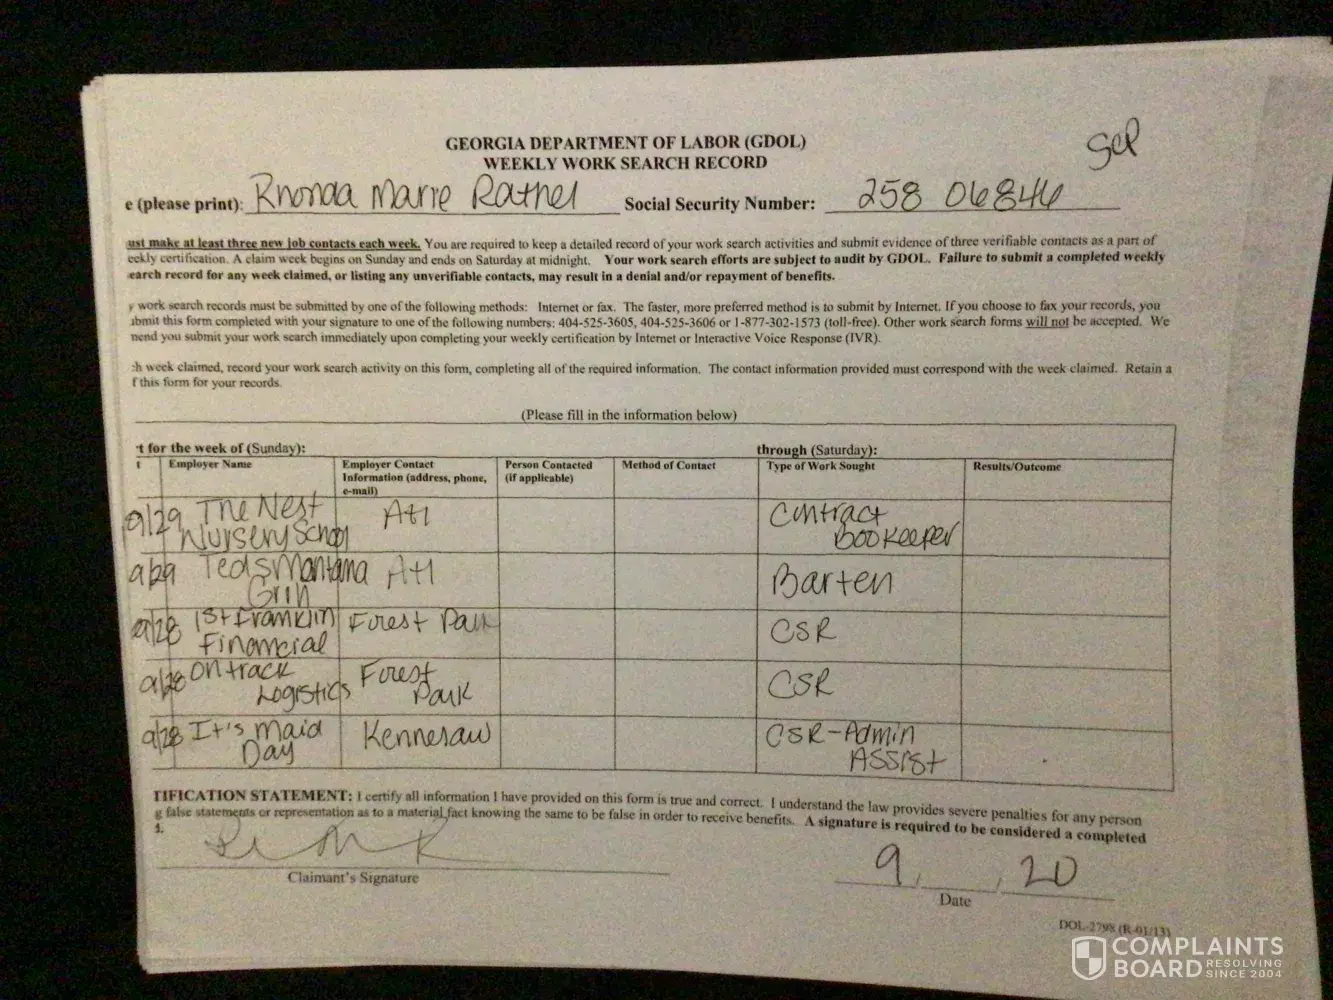 GEORGIA DEPARTMENT OF LABOR (GDOL)
WEEKLY WORK SEARCH RECORD
Sep
e (please print): Rhonda Marie Rathel Social Security Number: [redacted]
ust make at least three new job contacts each week. You are required to keep a detailed record of your work search activities and submit evidence of three verifiable contacts as a part of
eekly certification. A claim week begins on Sunday and ends on Saturday at midnight. Your work search efforts are subject to audit by GDOL. Failure to submit a completed weekly
earch record for any week claimed, or listing any unverifiable contacts, may result in a denial and/or repayment of benefits.
y work search records must be submitted by one of the following methods: Internet or fax. The faster, more preferred method is to submit by Internet. If you choose to fax your records, you
ubmit this form completed with your signature to one of the following numbers: 404-525-3605, 404-525-3606 or 1-877-302-1573 (toll-free). Other work search forms will not be accepted. We
mend you submit your work search immediately upon completing your weekly certification by Internet or Interactive Voice Response (IVR).
ch week claimed, record your work search activity on this form, completing all of the required information. The contact information provided must correspond with the week claimed. Retain a
f this form for your records.
(Please fill in the information below)
t for the week of (Sunday): through (Saturday):
t Employer Name Employer Contact Person Contacted Method of Contact Type of Work Sought Results/Outcome
Information (address, phone, (if applicable)
e-mail)
9/29 The Nest Atl Contract
Nursery School Bookeeper
9/29 Teds Montana Atl Barten
Grill
9/28 1st Franklin Forest Park CSR
Financial
9/28 Ontrack Forest CSR
Logistics Park
9/28 It's Maid Kennesaw CSR-Admin
Day Assist
TIFICATION STATEMENT: I certify all information I have provided on this form is true and correct. I understand the law provides severe penalties for any person
g false statements or representation as to a material fact knowing the same to be false in order to receive benefits. A signature is required to be considered a completed
d.
Claimant's Signature
9, , 20
Date
DOL-2798 (R-01/13)
COMPLAINTS
BOARD RESOLVING
SINCE 2004